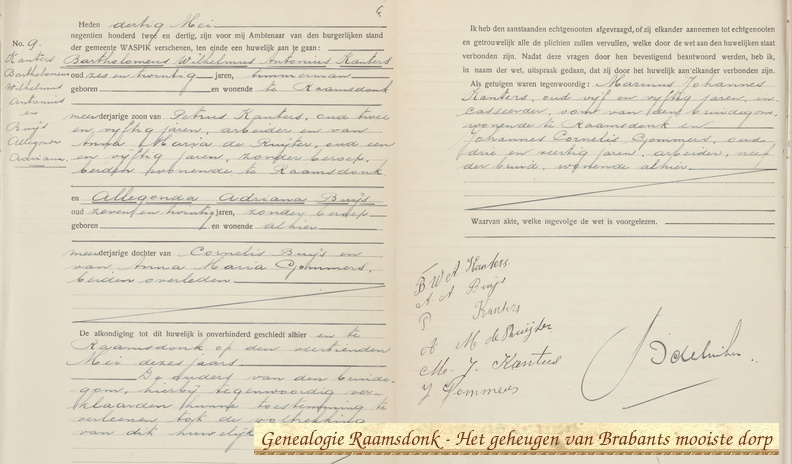 6
Heden dertig Mei
negentien honderd twee en dertig, zijn voor mij Ambtenaar van den burgerlijken stand
der gemeente WASPIK verschenen, ten einde een huwelijk aan te gaan:
Bartholomeus Wilhelmus Antonius Kanters
oud zes en twintig jaren, timmerman
geboren en wonende te Raamsdonk
meerderjarige zoon van Petrus Kanters, oud twee
en vijftig jaren, arbeider en van
Anna Maria de Ruijter, oud een
en vijftig jaren, zonder beroep,
beiden wonende te Raamsdonk
en Allegonda Adriana Buijs
oud zeven en twintig jaren, zonder beroep
geboren en wonende alhier
meerderjarige dochter van Cornelis Buijs en
van Anna Maria Gommers,
beiden overleden
De afkondiging tot dit huwelijk is onverhinderd geschiedt alhier en te
Raamsdonk op den veertienden
Mei dezes jaars
De ouders van den bruide-
gom, hierbij tegenwoordig ver-
klaarden hunne toestemming te
verleenen tot de voltrekking
van dit huwelijk
No. 9.
Kanters
Bartholomeus
Wilhelmus
Antonius
en
Buijs
Allegonda
Adriana.
Ik heb den aanstaanden echtgenooten afgevraagd, of zij elkander aannemen tot echtgenooten
en getrouwelijk alle de plichten zullen vervullen, welke door de wet aan den huwelijken staat
verbonden zijn. Nadat deze vragen door hen bevestigend beantwoord werden, heb ik,
in naam der wet, uitspraak gedaan, dat zij door het huwelijk aan elkander verbonden zijn.
Als getuigen waren tegenwoordig: Marinus Johannes
Kanters, oud vijf en vijftig jaren, in-
casseerder, oom van den bruidegom,
wonende te Raamsdonk en
Johannes Cornelis Gommers, oud
drie en veertig jaren, arbeider, neef
der bruid, wonende alhier
Waarvan akte, welke ingevolge de wet is voorgelezen.
B W A Kanters
A A Buijs
P Kanters
A M de Ruijter
M. J. Kanters
J Gommers
Genealogie Raamsdonk - Het geheugen van Brabants mooiste dorp